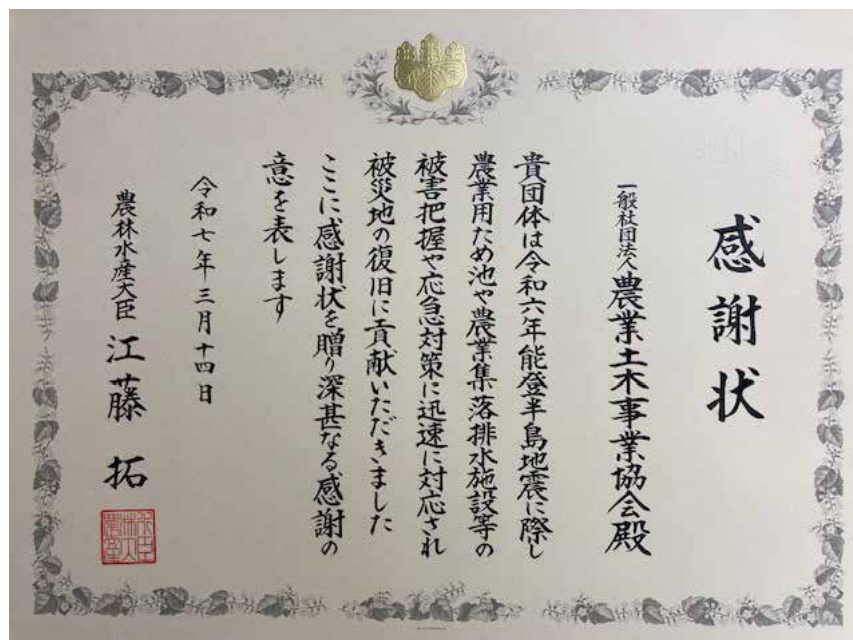 感謝状
一般社団法人 農業土木事業協会殿
貴団体は令和六年能登半島地震に際し
農業用ため池や農業集落排水施設等の
被害把握や応急対策に迅速に対応され
被災地の復旧に貢献いただきました
ここに感謝状を贈り深甚なる感謝の
意を表します
令和七年三月十四日
農林水産大臣 江藤 拓